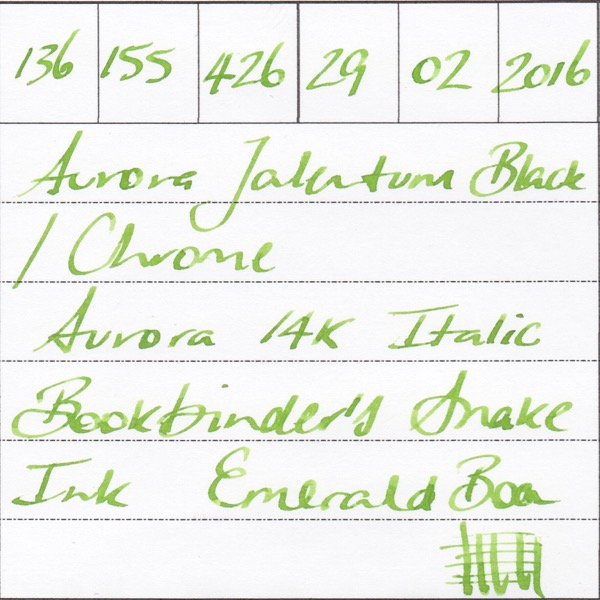 136 155 426 29 02 2016
Aurora Talentum Black
/ Chrome
Aurora 14K Italic
Bookbinder's Snake
Ink Emerald Boa